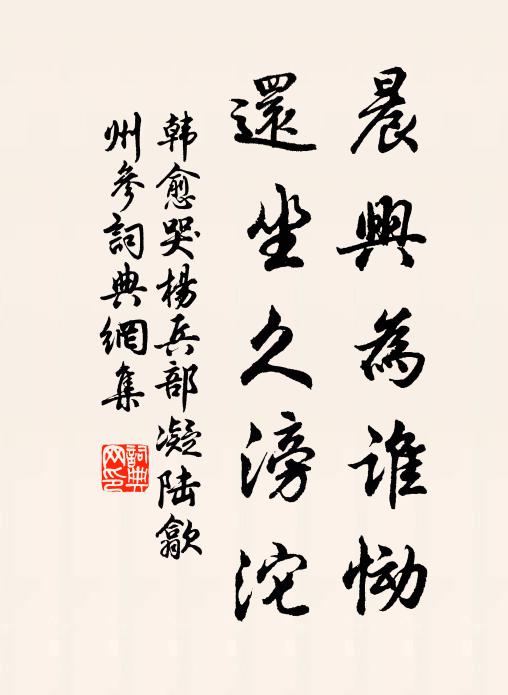 晨興為誰慟
還坐久滂沱
韩愈哭楊兵部凝陆歙
州參詞典網集
詞典
网印